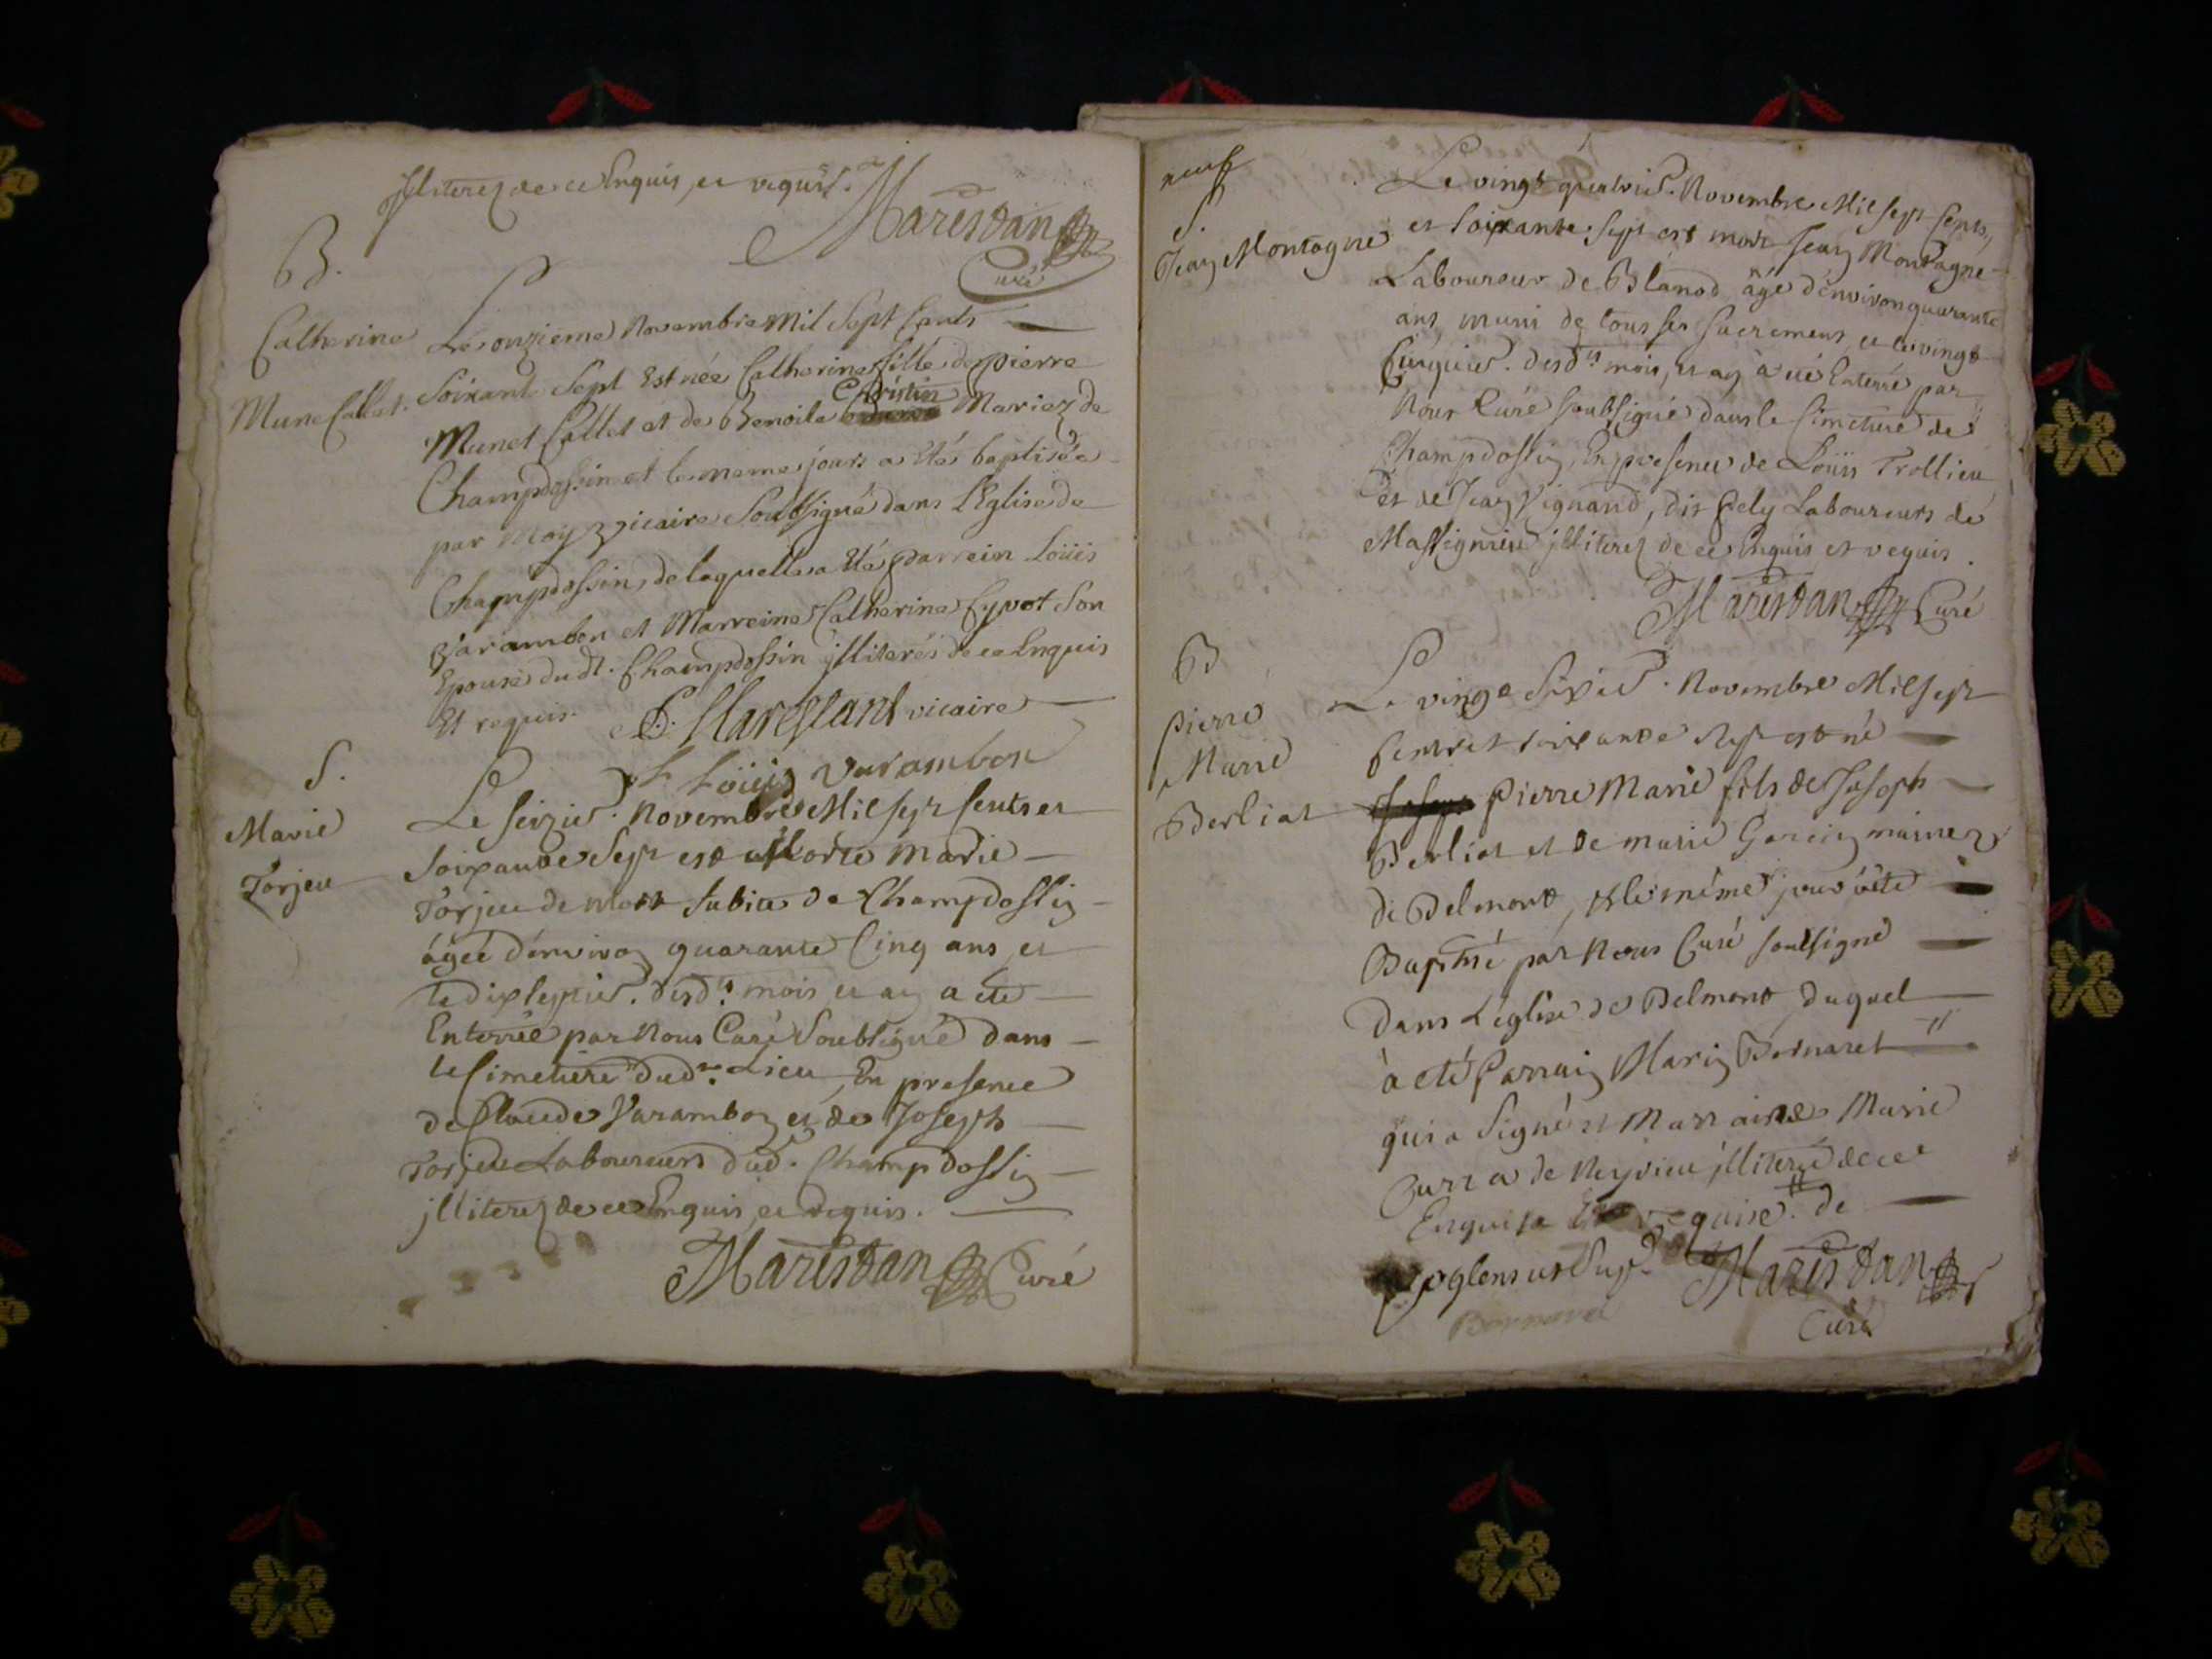 illiterez de ce Enquis, et requis.
Marestan
Curé
B.
Catherine
Munet Collet.
Le onzieme Novembre Mil Sept Cents
Soixant Sept Est née Catherine fille de pierre
Christin
Munet Collet et de Benoite Mariez de
Champdossin et le meme jours a été baptisée
par Moy vicaire Soubsigné dans l'Eglise de
Champdossin, de laquelle a été parrein Loüis
Varambon et Marreine Catherine Cyvot Son
Epouse dudt. Champdossin illiterés de ce Enquis
Et requis. Marestant vicaire
Loüis varambon
S.
Marie
Torjeu
Le seizie. Novembre Mil sept Cents et
Soixante Sept est Morte Marie
Torjeu de Mort Subite de Champdossin
agée d'environ quarante Cinq ans, et
le dixseptie. desdts. mois et an a été
Enterrée par Nous Curé Soubsigné dans
le Cimetiere dudt. Lieu, En presence
de Claude Varambon et de Joseph
Torjeu Laboureurs dud. Champdossin
illiterez de ce Enquis et Requis.
Marestan Curé
neuf
S.
Jean Montagne
Le vingt quatrie. Novembre Mil sept Cents,
et Soixante Sept est mort Jean Montagne
Laboureur de Blanod âgé d'environ quarante
ans muni de tous ses Sacrements, et le vingt
Cinquie. desdts. mois, et an à été Enterré par
Nous Curé soubsigné dans le Cimetiere de
Champdossin, En presence de Loüis Trollieu
et de Jean Vignand, dit Cely Laboureurs de
Massignieu illiterez de ce Enquis et requis.
Marestan Curé
B
pierre
Marie
Berliat
Le vingt Sixie. Novembre Mil sept
Cents et soixante sept est né
pierre Marie fils de Joseph
Berliat et de marie Garin mariez
de Belmont, et le même jour a été
Baptisé par Nous Curé soubsigné
Dans L'église de Belmont Duquel
à été Parrain Marin Bernaret
qui a Signé et Marraine Marie
de Neyrieu illiterée de ce
Enquise requise. de
Marestan
Curé